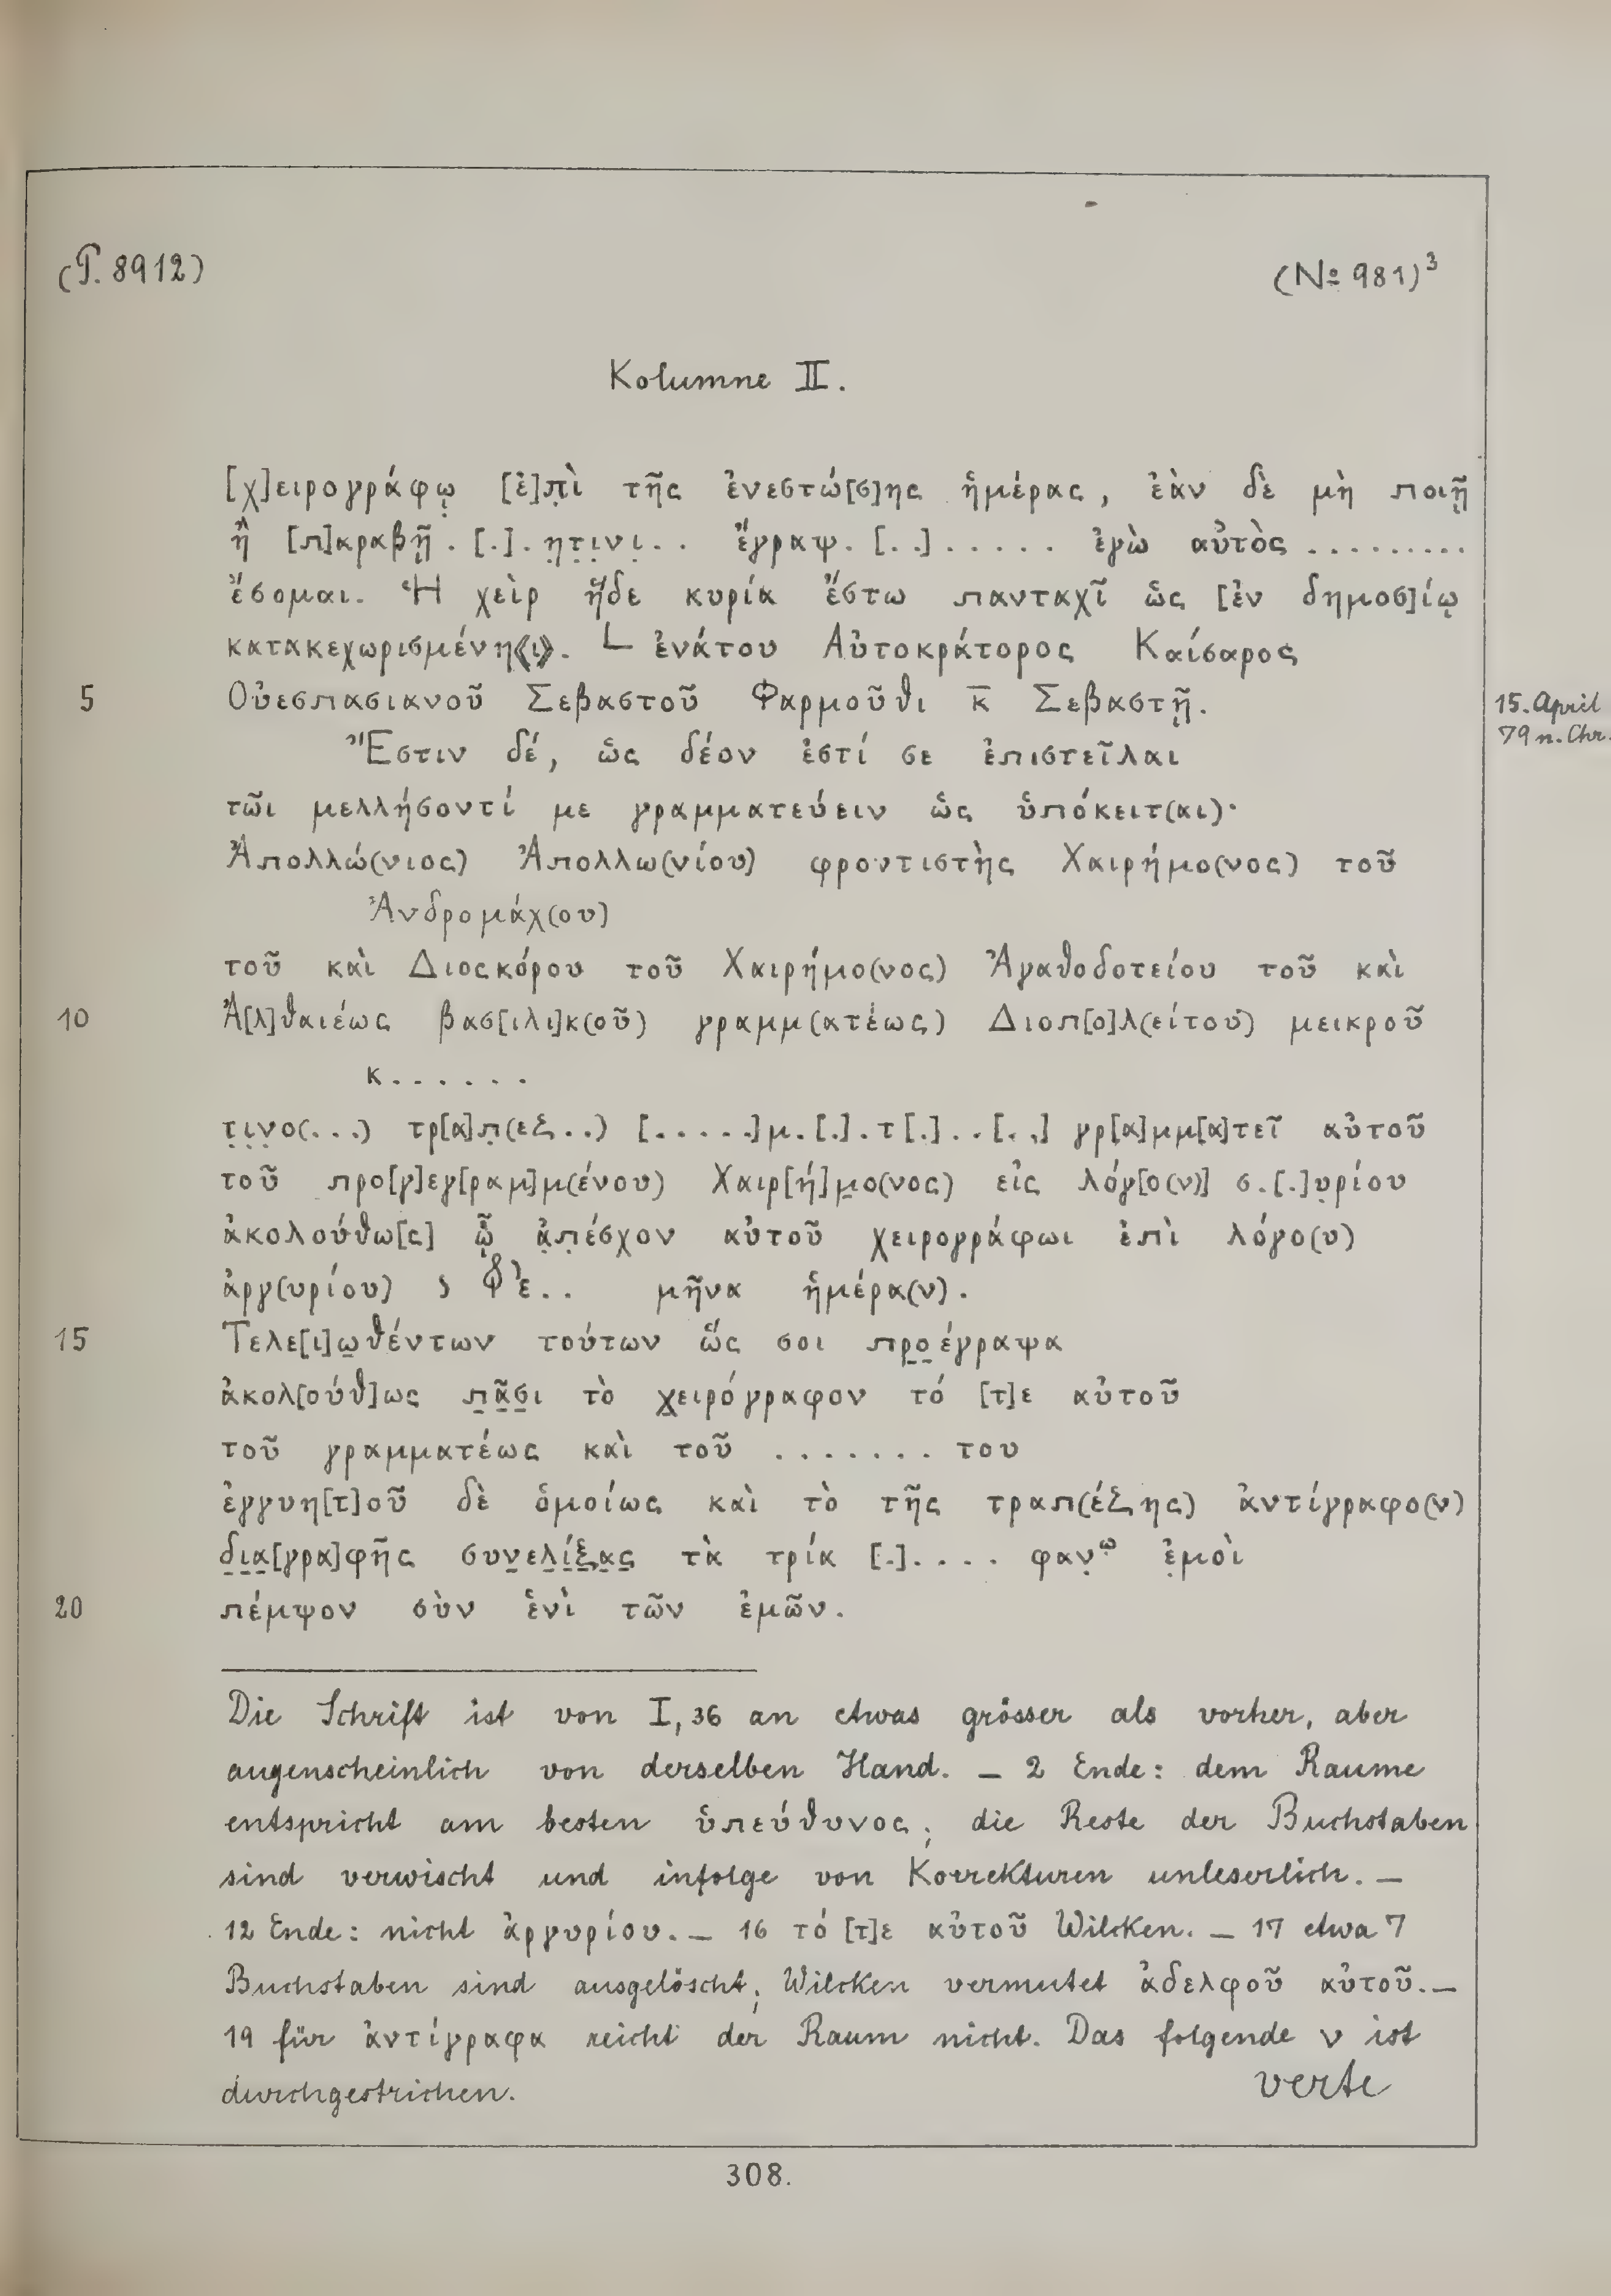 (P. 8912)
(№ 981)³
Kolumne II.
[χ]ειρογράφῳ [ἐ]π̣ὶ τῆς ἐνεστώ[σ]ης ἡμέρας, ἐὰν δὲ μὴ ποιῇ
ἢ [π]αραβῇ . [.] . ητ̣ι̣νι̣ . . ἔγραψ . [. .] . . . . . ἐγὼ αὐτὸς . . . . . . . . .
ἔσομαι. Ἡ χεὶρ ἥδε κυρία ἔστω πανταχῖ ὡς [ἐν δημοσ]ίῳ
κατακεχωρισμένη⟪ι⟫. └ ἐνάτου Αὐτοκράτορος Καίσαρος
5 Οὐεσπασιανοῦ Σεβαστοῦ Φαρμοῦθι κ̅ Σεβαστῇ.
15. April
79 n. Chr.
Ἔστιν δέ, ὡς δέον ἐστί σε ἐπιστεῖλαι
τῶι μελλήσοντί με γραμματεύειν ὡς ὑπόκειτ(αι)·
Ἀπολλώ(νιος) Ἀπολλω(νίου) φροντιστὴς Χαιρήμο(νος) τοῦ
Ἀνδρομάχ(ου)
τοῦ καὶ Διοσκόρου τοῦ Χαιρήμο(νος) Ἀγαθοδοτείου τοῦ καὶ
10 Ἀ[λ]θαιέως βασ[ιλι]κ(οῦ) γραμμ(ατέως) Διοπ[ο]λ(είτου) μεικροῦ
κ . . . . . .
τ̣ι̣ν̣ο(. . .) τρ[α]π̣(εζ . .) [. . . . .]μ . [.] . τ [.] . . [. .] γρ[α]μμ[α]τεῖ αὐτοῦ
τοῦ προ[γ]εγ[ραμ]μ(ένου) Χαιρ[ή]μ̣ο(νος) εἰς λόγ[ο(ν)] σ . [.]υ̣ρίου
ἀκολούθω[ς] ᾧ̣ ἀ̣π̣έσχον αὐτοῦ χειρογράφωι ἐπὶ λόγο(υ)
ἀργ(υρίου) . . μῆνα ἡμέρα(ν).
15 Τελε[ι]ω̣θέντων τούτων ὥς σοι πρ̣ο̣έγραψα
ἀκολ[ούθ]ως π̣ᾶ̣σ̣ι τὸ χ̣ειρόγραφον τό [τ]ε αὐτοῦ
τοῦ γραμματέως καὶ τοῦ . . . . . . . του
ἐγγυη[τ]οῦ δὲ ὁμοίως καὶ τὸ τῆς τραπ(έζης) ἀντίγραφο(ν)
δ̣ι̣α̣[γρα]φῆς συν̣ε̣λ̣ί̣ξ̣α̣ς̣ τὰ τρία [.] . . . . φαν̣ω̣ ἐ̣μοὶ
20 πέμψον σὺν ἑνὶ τῶν ἐμῶν.
Die Schrift ist von I, 36 an etwas grösser als vorher, aber
augenscheinlich von derselben Hand. — 2 Ende: dem Raume
entspricht am besten ὑπεύθυνος; die Reste der Buchstaben
sind verwischt und infolge von Korrekturen unleserlich. —
12 Ende: nicht ἀργυρίου. — 16 τό [τ]ε αὐτοῦ Wilcken. — 17 etwa 7
Buchstaben sind ausgelöscht; Wilcken vermutet ἀδελφοῦ αὐτοῦ. —
19 für ἀντίγραφα reicht der Raum nicht. Das folgende ν ist
durchgestrichen.
verte
308.